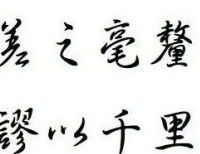 差之毫釐
謬以千里